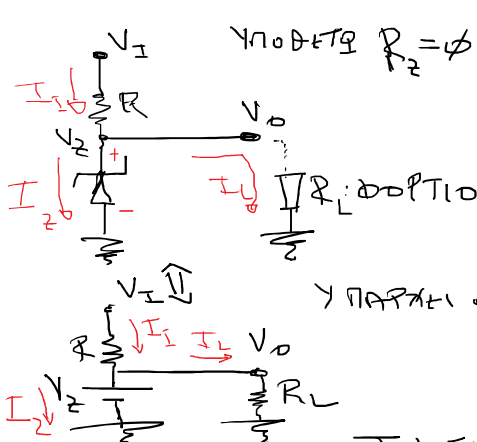 V_I
ΥΠΟΘΕΤΩ R_Z = 0
I_I
R
V_O
V_Z
+
I_Z
−
I_L
R_L: ΦΟΡΤΙΟ
V_I
ΥΠΑΡΧΕΙ
R
I_I
I_L
V_O
V_Z
R_L
I_Z